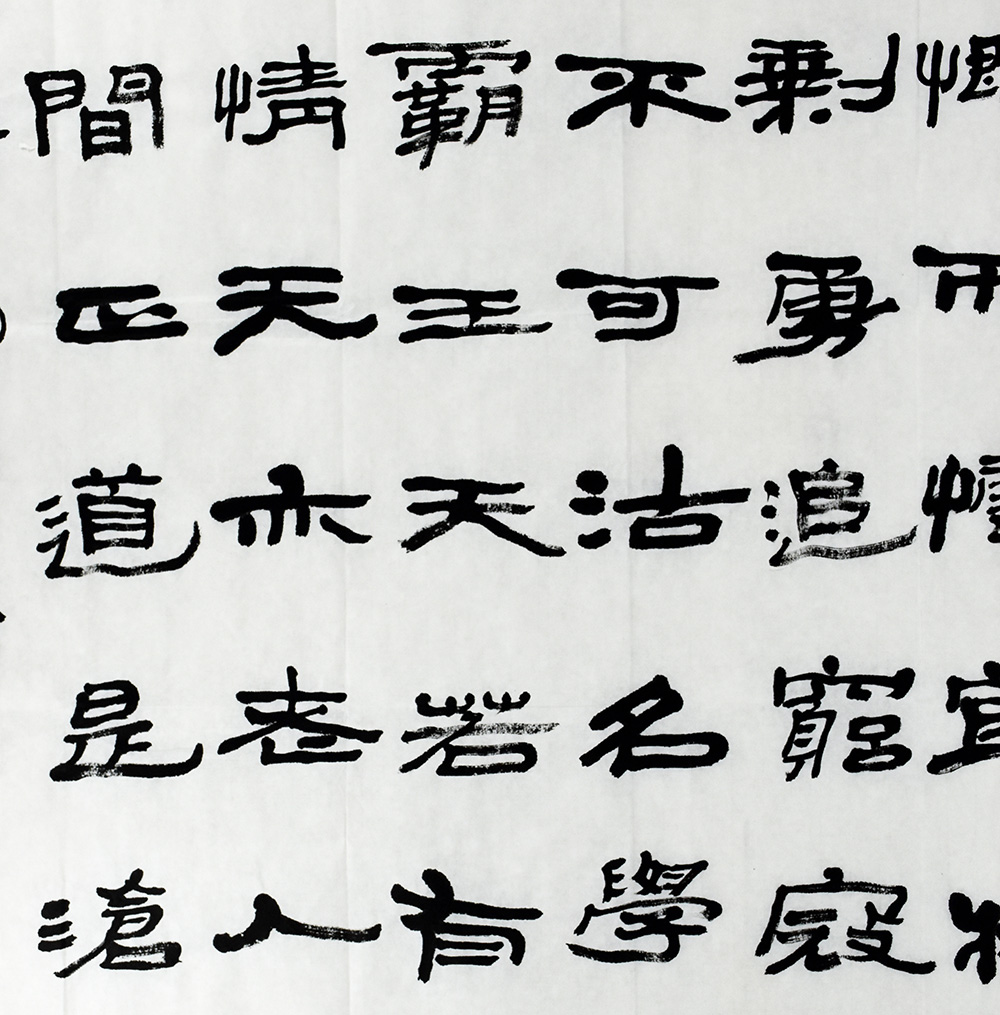 剩勇追窮寇
不可沽名學
霸王天若有
情天亦老人
間正道是滄